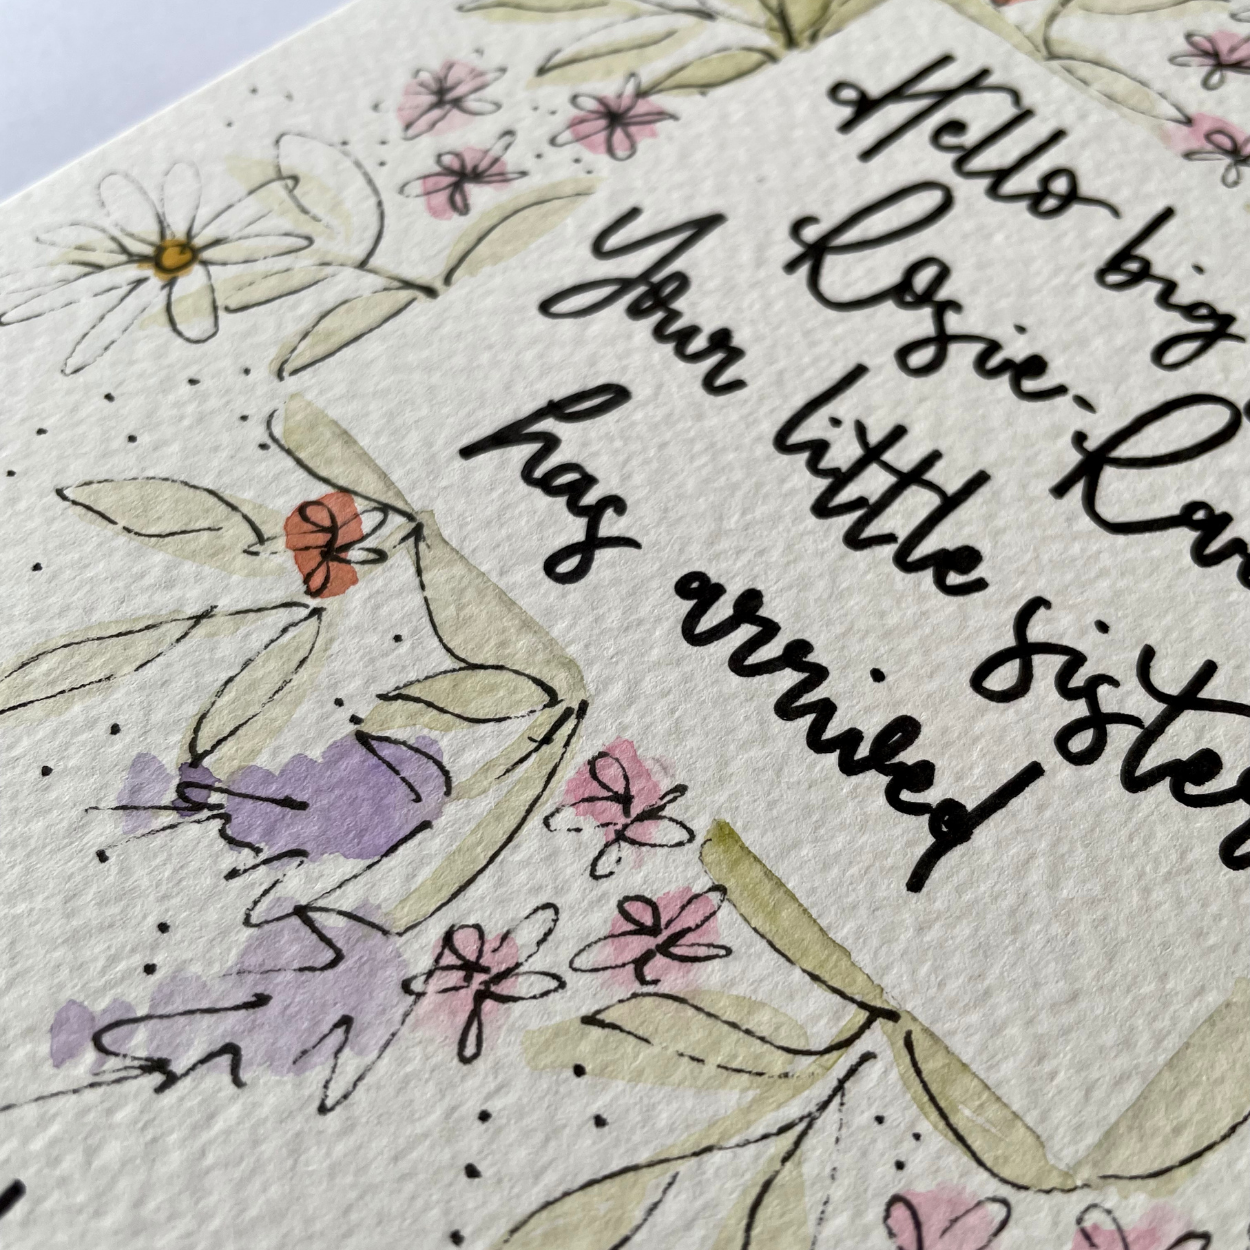 Hello big
Rosie-
Your little sister
has arrived